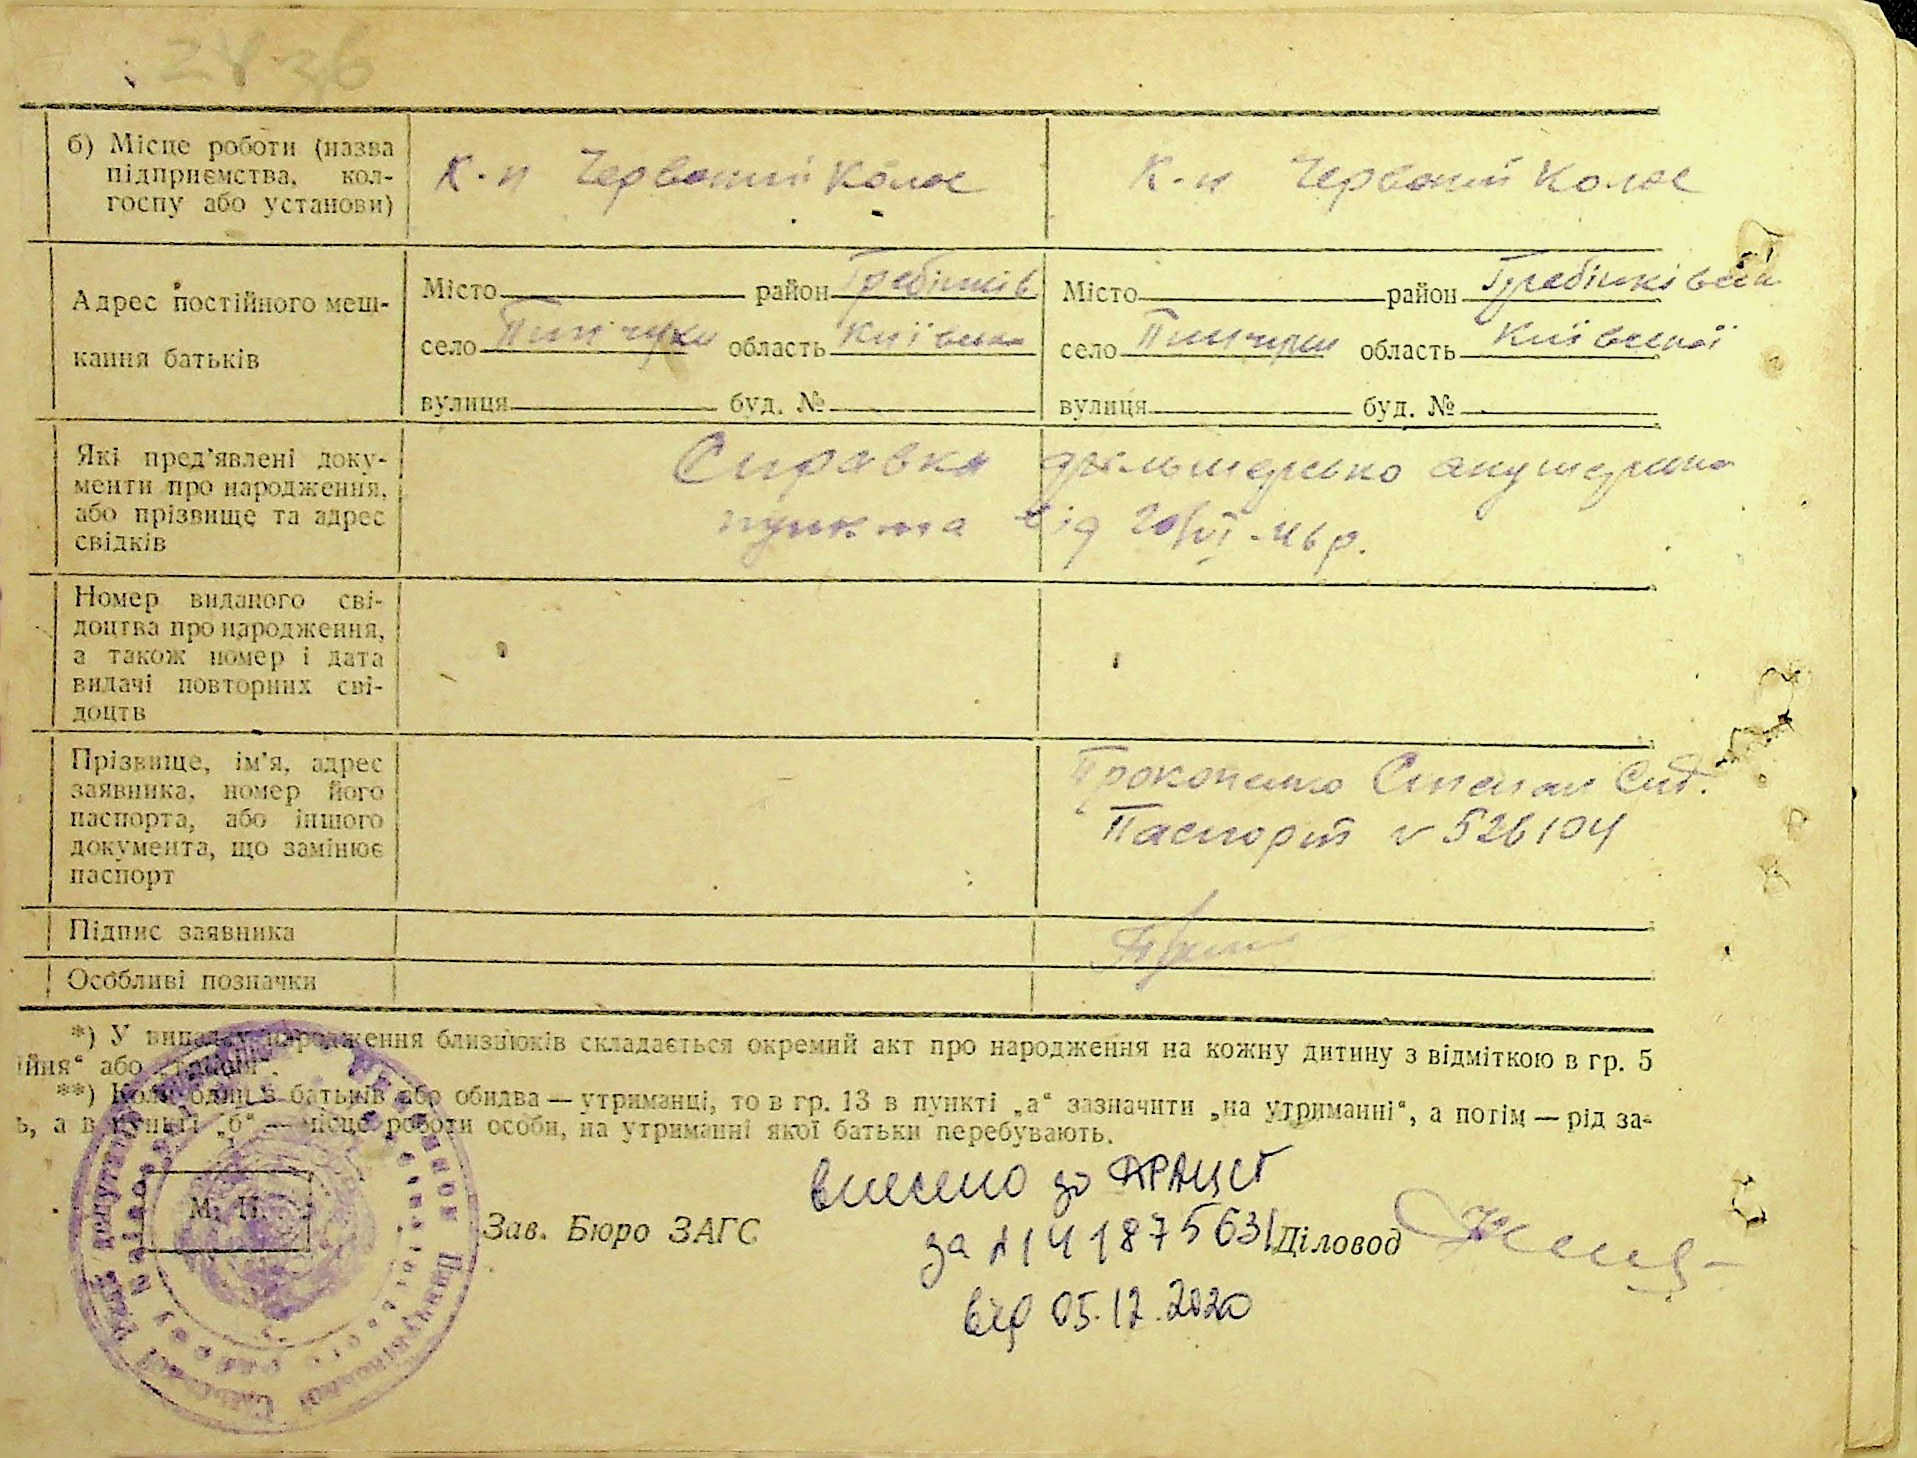 28.36
б) Місце роботи (назва
підприємства, кол-
госпу або установи)
К-п Червоний Колос
К-п Червоний Колос
Адрес постійного меш-
кання батьків
Місто район Гребінків
село Пинчуки область Київська
вулиця буд. №
Місто район Гребінківськ
село Пинчуки область Київської
вулиця буд. №
Які пред'явлені доку-
менти про народження,
або прізвище та адрес
свідків
Справка фельшерсько акушерського
пункта від 20/VI-46 р.
Номер виданого сві-
доцтва про народження,
а також номер і дата
видачі повторних сві-
доцтв
Прізвище, ім'я, адрес
заявника, номер його
паспорта, або іншого
документа, що замінює
паспорт
Прокопенко Степан Сид.
Паспорт № 526104
Підпис заявника
Особливі позначки
*) У випадку народження близнюків складається окремий акт про народження на кожну дитину з відміткою в гр. 5
ійня" або „трійня".
**) Коли один з батьків або обидва — утриманці, то в гр. 13 в пункті „а" зазначити „на утриманні", а потім — рід за-
ь, а в пункті „б" — місце роботи особи, на утриманні якої батьки перебувають.
М. П.
Зав. Бюро ЗАГС
Діловод
внесено до ДРАЦСГ
за №141875631
від 05.12.2020